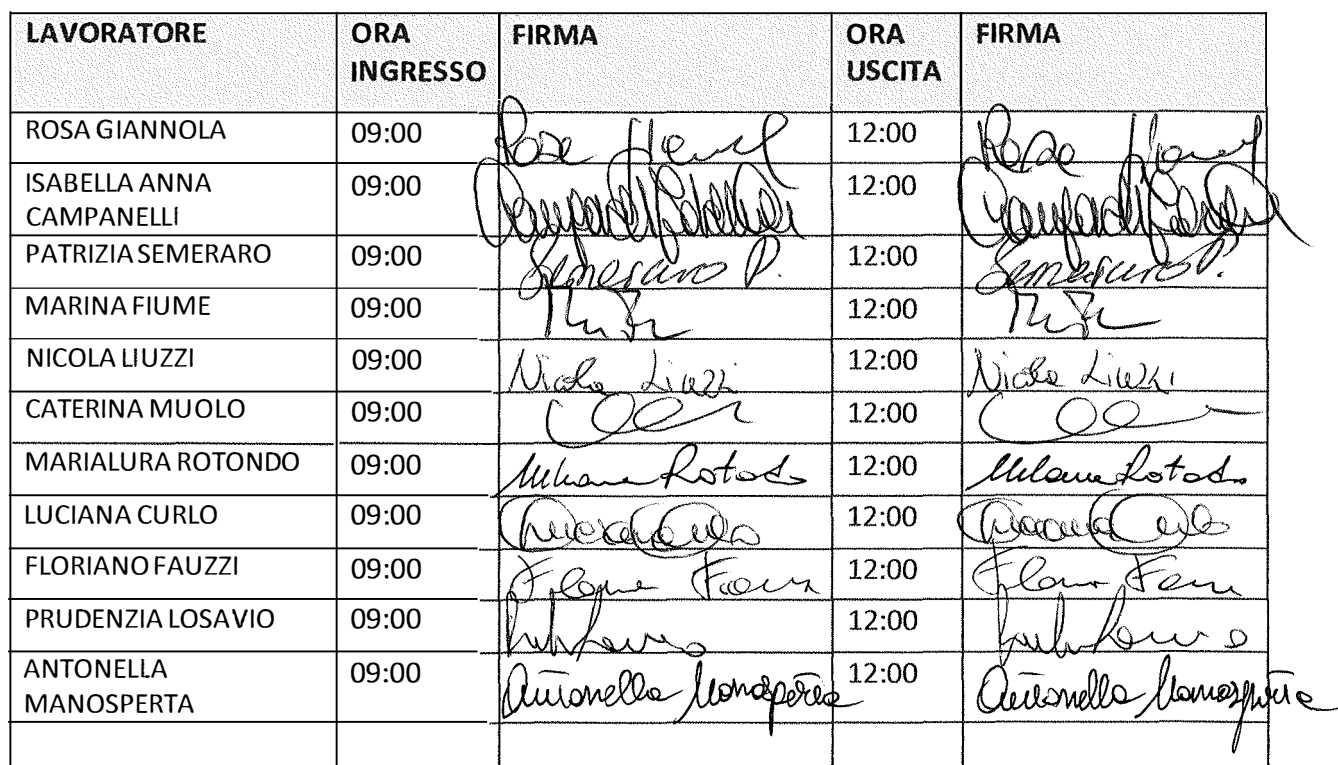 LAVORATORE ORA INGRESSO FIRMA ORA USCITA FIRMA
ROSA GIANNOLA 09:00 12:00
ISABELLA ANNA CAMPANELLI 09:00 12:00
PATRIZIA SEMERARO 09:00 Semeraro P. 12:00 Semeraro P.
MARINA FIUME 09:00 12:00
NICOLA LIUZZI 09:00 Nicola Liuzzi 12:00 Nicola Liuzzi
CATERINA MUOLO 09:00 12:00
MARIALURA ROTONDO 09:00 12:00
LUCIANA CURLO 09:00 Luciana Curlo 12:00 Luciana Curlo
FLORIANO FAUZZI 09:00 12:00
PRUDENZIA LOSAVIO 09:00 12:00
ANTONELLA MANOSPERTA 09:00 Antonella Manosperta 12:00 Antonella Manosperta